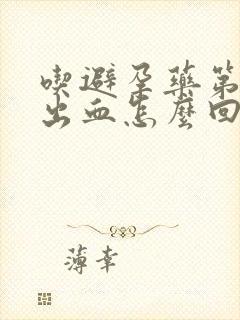 喫避孕藥第
出血怎麼回
薄幸